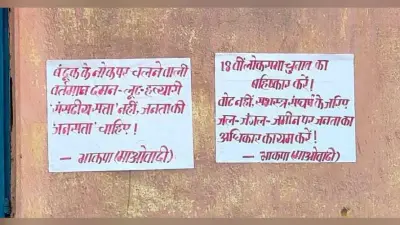 बंदूक के नोक पर चलने वाली
वर्तमान दमन-लूट-हत्यारी
'संसदीय सत्ता' नहीं, जनता की
'जनसत्ता' चाहिए!
— भाकपा (माओवादी)
18 वीं लोकसभा चुनाव का
बहिष्कार करें!
वोट नहीं, सशस्त्र संघर्ष के जरिए
जल-जंगल-जमीन पर जनता का
अधिकार कायम करें!
— भाकपा (माओवादी)